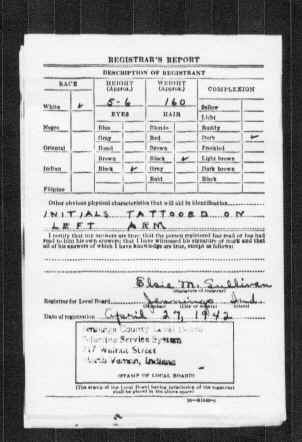 REGISTRAR'S REPORT
DESCRIPTION OF REGISTRANT
RACE HEIGHT (Approx.) WEIGHT (Approx.) COMPLEXION
White ✓ 5-6 160 Sallow
EYES HAIR Light
Negro Blue Blonde Ruddy
Gray Red Dark ✓
Oriental Hazel Brown Freckled
Brown Black ✓ Light brown
Indian Black ✓ Gray Dark brown
Bald Black
Filipino
Other obvious physical characteristics that will aid in identification
INITIALS TATTOOED ON
LEFT ARM
I certify that my answers are true; that the person registered has read or has had
read to him his own answers; that I have witnessed his signature or mark and that
all of his answers of which I have knowledge are true, except as follows:
Elsie M. Sullivan
(Signature of registrar)
Registrar for Local Board Jennings Ind.
Date of registration April 27, 1942
Jennings County Local Board
Selective Service System
Walnut Street
North Vernon, Indiana
(STAMP OF LOCAL BOARD)
(The stamp of the Local Board having jurisdiction of the registrant
shall be placed in the above space)